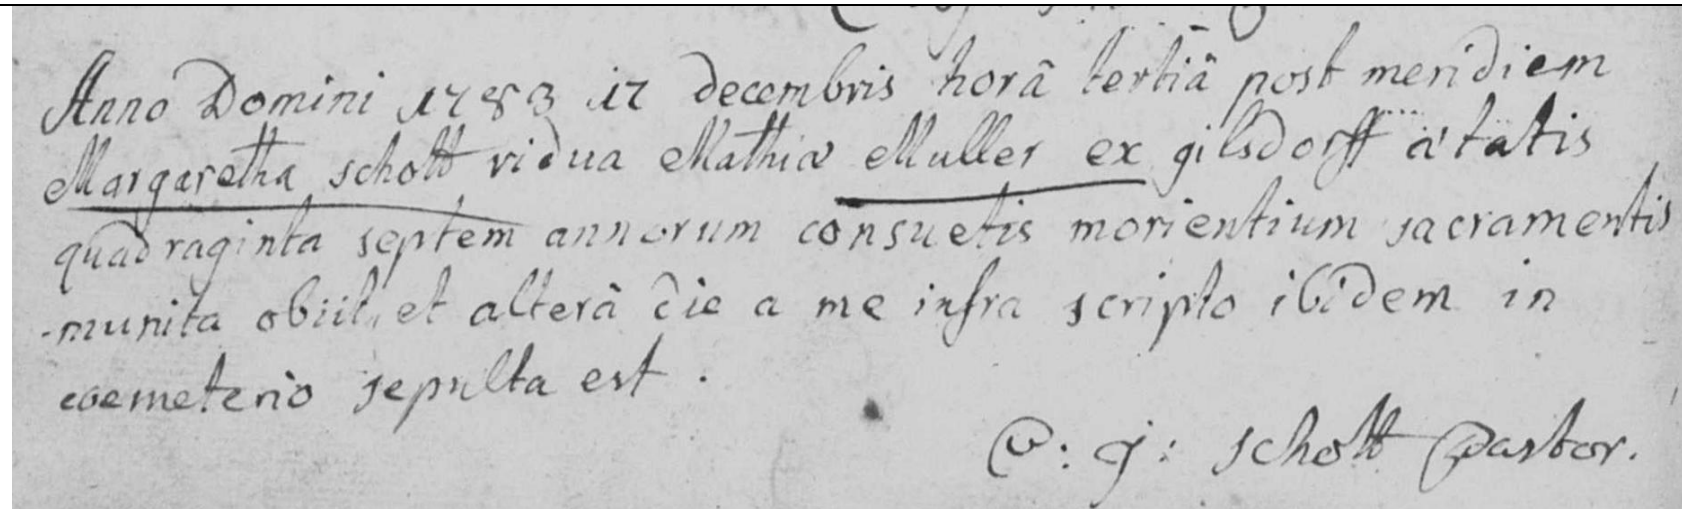 Anno Domini 1783 17 decembris horâ tertiâ post meridiem
Margaretha schott vidua Mathiæ Muller ex gilsdorff ætatis
quadraginta septem annorum consuetis morientium sacramentis
munita obiit, et alterâ die a me infra scripto ibidem in
coemeterio sepulta est.
j: schott pastor.